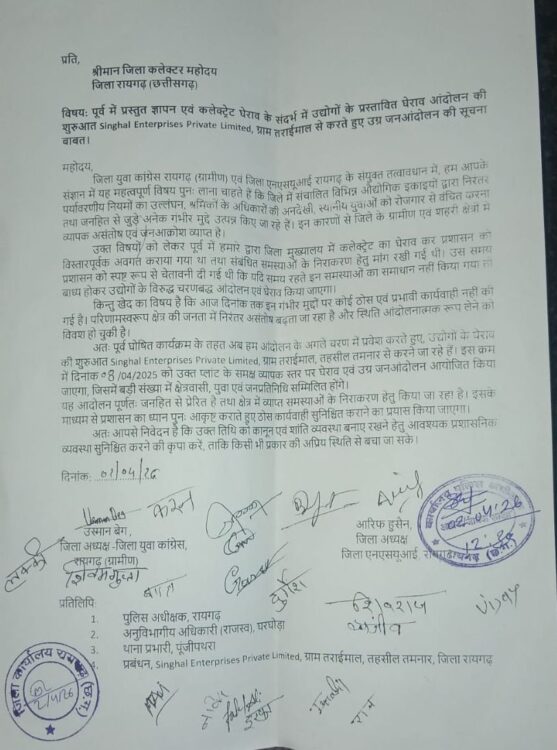 प्रति,
श्रीमान जिला कलेक्टर महोदय
जिला रायगढ़ (छत्तीसगढ़)
विषयः पूर्व में प्रस्तुत ज्ञापन एवं कलेक्ट्रेट घेराव के संदर्भ में उद्योगों के प्रस्तावित घेराव आंदोलन की
शुरुआत Singhal Enterprises Private Limited, ग्राम तराईमाल से करते हुए उग्र जनआंदोलन की सूचना
बाबत।
महोदय,
जिला युवा कांग्रेस रायगढ़ (ग्रामीण) एवं जिला एनएसयूआई रायगढ़ के संयुक्त तत्वावधान में, हम आपके
संज्ञान में यह महत्वपूर्ण विषय पुनः लाना चाहते हैं कि जिले में संचालित विभिन्न औद्योगिक इकाइयों द्वारा निरंतर
पर्यावरणीय नियमों का उल्लंघन, श्रमिकों के अधिकारों की अनदेखी, स्थानीय युवाओं को रोजगार से वंचित करना
तथा जनहित से जुड़े अनेक गंभीर मुद्दे उत्पन्न किए जा रहे हैं। इन कारणों से जिले के ग्रामीण एवं शहरी क्षेत्रों में
व्यापक असंतोष एवं जनआक्रोश व्याप्त है।
उक्त विषयों को लेकर पूर्व में हमारे द्वारा जिला मुख्यालय में कलेक्टर का घेराव कर प्रशासन को
विस्तारपूर्वक अवगत कराया गया था तथा संबंधित समस्याओं के निराकरण हेतु मांग रखी गई थी। उस समय
प्रशासन को स्पष्ट रूप से चेतावनी दी गई थी कि यदि समय रहते इन समस्याओं का समाधान नहीं किया गया तो
बाध्य होकर उद्योगों के विरुद्ध चरणबद्ध आंदोलन एवं घेराव किया जाएगा।
किन्तु खेद का विषय है कि आज दिनांक तक इन गंभीर मुद्दों पर कोई ठोस एवं प्रभावी कार्यवाही नहीं की
गई है। परिणामस्वरूप क्षेत्र की जनता में निरंतर असंतोष बढ़ता जा रहा है और स्थिति आंदोलनात्मक रूप लेने को
विवश हो चुकी है।
अतः पूर्व घोषित कार्यक्रम के तहत अब हम आंदोलन के अगले चरण में प्रवेश करते हुए, उद्योगों के घेराव
की शुरुआत Singhal Enterprises Private Limited, ग्राम तराईमाल, तहसील तमनार से करने जा रहे हैं। इस क्रम
में दिनांक 08/04/2025 को उक्त प्लांट के समक्ष व्यापक स्तर पर घेराव एवं उग्र जनआंदोलन आयोजित किया
जाएगा, जिसमें बड़ी संख्या में क्षेत्रवासी, युवा एवं जनप्रतिनिधि सम्मिलित होंगे।
यह आंदोलन पूर्णतः जनहित से प्रेरित है तथा क्षेत्र में व्याप्त समस्याओं के निराकरण हेतु किया जा रहा है। इसके
माध्यम से प्रशासन का ध्यान पुनः आकृष्ट कराते हुए ठोस कार्यवाही सुनिश्चित कराने का प्रयास किया जाएगा।
अतः आपसे निवेदन है कि उक्त तिथि को कानून एवं शांति व्यवस्था बनाए रखने हेतु आवश्यक प्रशासनिक
व्यवस्था सुनिश्चित करने की कृपा करें, ताकि किसी भी प्रकार की अप्रिय स्थिति से बचा जा सके।
दिनांक: 02/04/26
उस्मान बेग,
जिला अध्यक्ष -जिला युवा कांग्रेस,
रायगढ़ (ग्रामीण)
आरिफ हुसैन,
जिला अध्यक्ष
जिला एनएसयूआई,
02/04/26
लक्की
शिवम गुप्ता
दुर्गेश
शिवराज
संजीव
Vijay
प्रतिलिपि
1. पुलिस अधीक्षक, रायगढ़
2. अनुविभागीय अधिकारी (राजस्व), घरघोड़ा
3. थाना प्रभारी, पूंजीपथरा
4. प्रबंधन, Singhal Enterprises Private Limited, ग्राम तराईमाल, तहसील तमनार, जिला रायगढ़
जिला कार्यालय रायगढ़ (छ.ग.)
2/4/26
राम